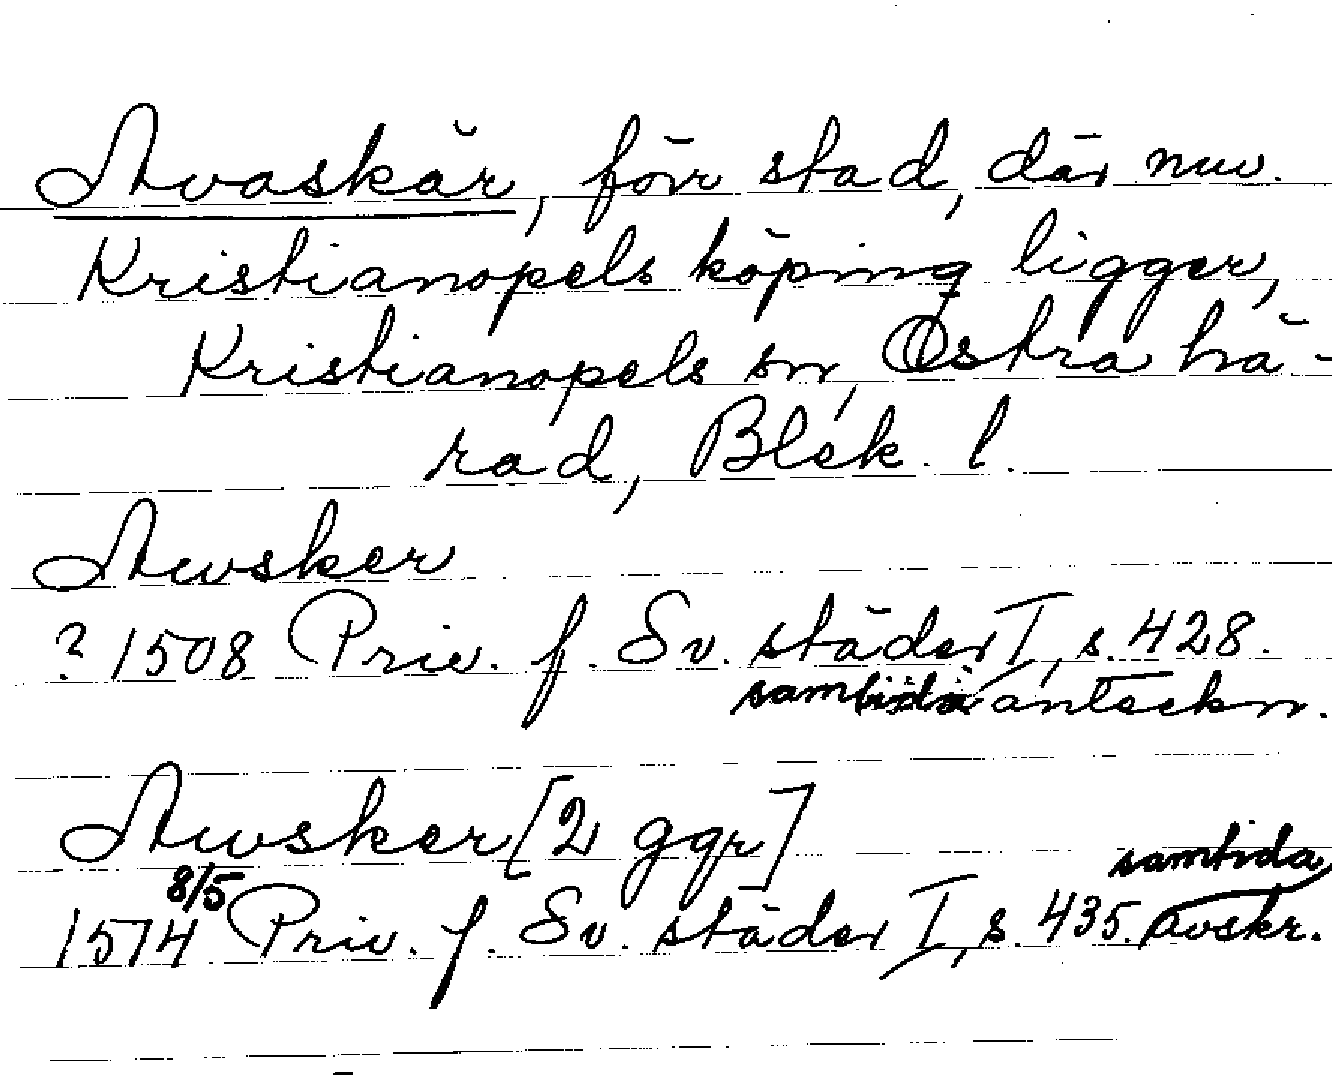 Avaskär, förr stad, där nuv.
Kristianopels köping ligger,
Kristianopels sn, Östra hä-
rad, Blek. l.
Awsker
? 1508 Priv. f. Sv. städer I, s. 428.
samtida anteckn.
Awsker [2 ggr]
samtida
8/5
1514 Priv. f. Sv. städer I, s. 435. avskr.